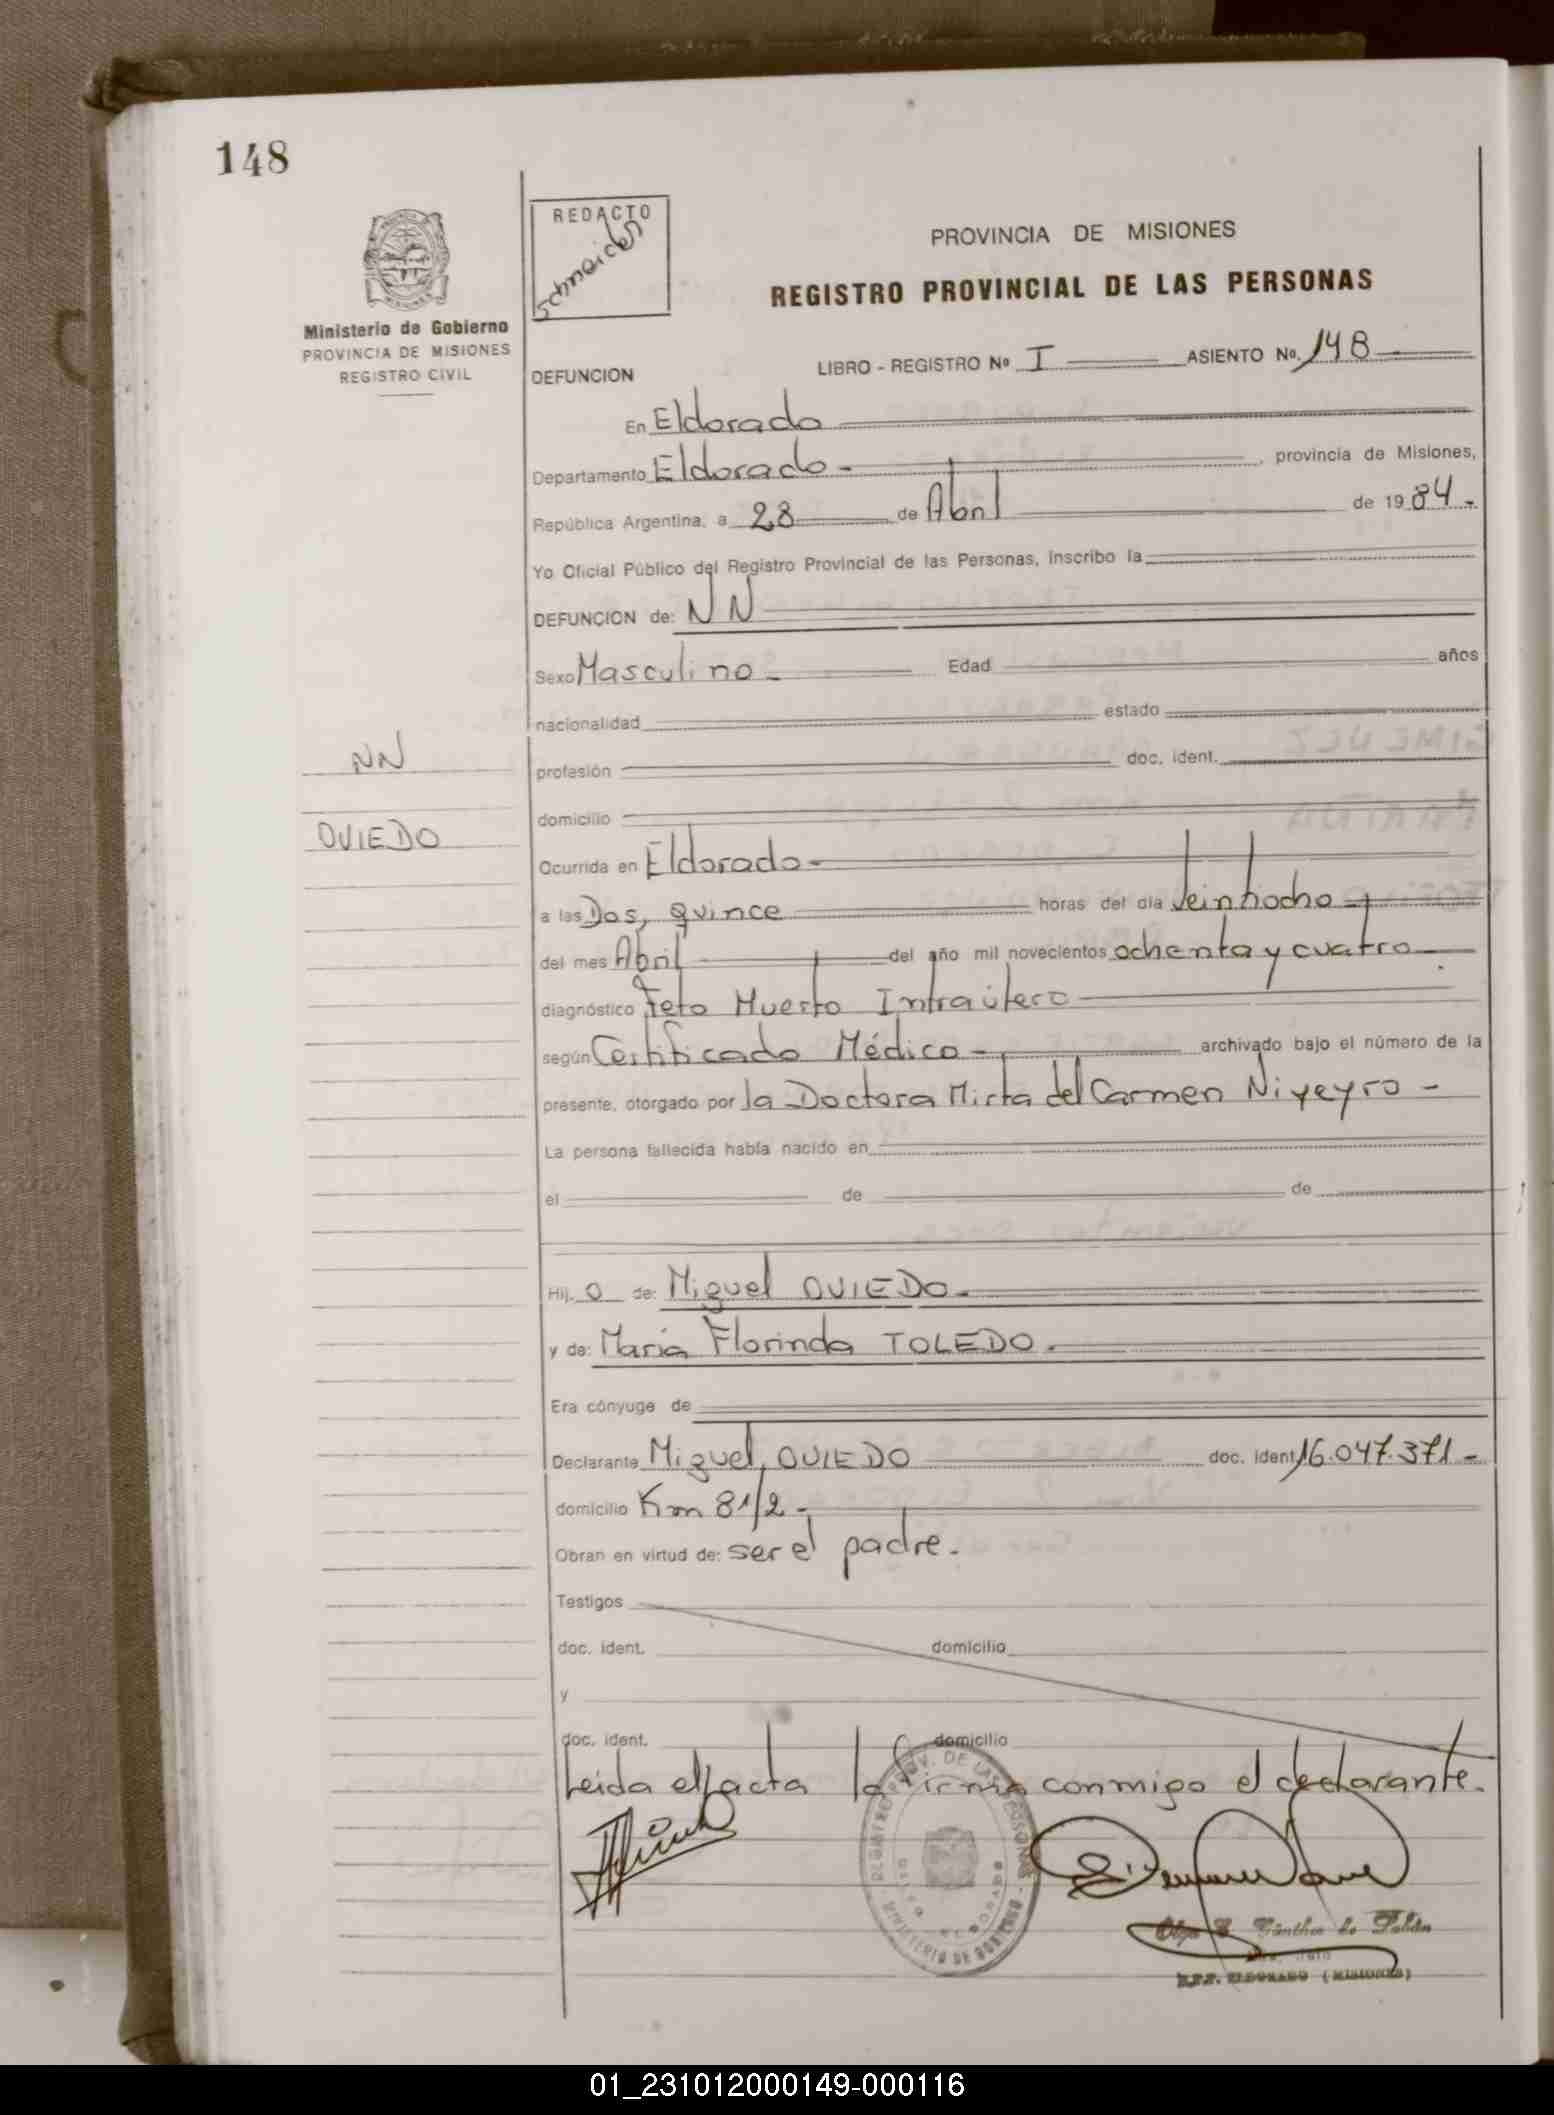 148
REDACTO
Schneider
Ministerio de Gobierno
PROVINCIA DE MISIONES
REGISTRO CIVIL
PROVINCIA DE MISIONES
REGISTRO PROVINCIAL DE LAS PERSONAS
DEFUNCION LIBRO - REGISTRO Nº I ASIENTO Nº. 148
En Eldorado
Departamento Eldorado - , provincia de Misiones,
República Argentina, a 28 de Abril de 1984.-
Yo Oficial Público del Registro Provincial de las Personas, inscribo la
DEFUNCION de: NN
Sexo Masculino - Edad años
nacionalidad estado
NN
profesión doc. ident.
domicilio
OVIEDO
Ocurrida en Eldorado-
a las Dos, quince horas del día Veintiocho
del mes Abril del año mil novecientos ochenta y cuatro
diagnóstico Feto Muerto Intraútero
según Certificado Médico - archivado bajo el número de la
presente, otorgado por la Doctora Mirta del Carmen Niveyro -
La persona fallecida había nacido en
el de de
Hij o de: Miguel OVIEDO.
y de: María Florinda TOLEDO.
Era cónyuge de
Declarante Miguel, OVIEDO doc. ident. 16.047.371-
domicilio Km 8 1/2 -
Obran en virtud de: ser el padre.
Testigos
doc. ident. domicilio
y
doc. ident. domicilio
Leida el acta la firma conmigo el declarante.
MINISTERIO DE GOBIERNO
R.P.P. ELDORADO (MISIONES)
01_231012000149-000116